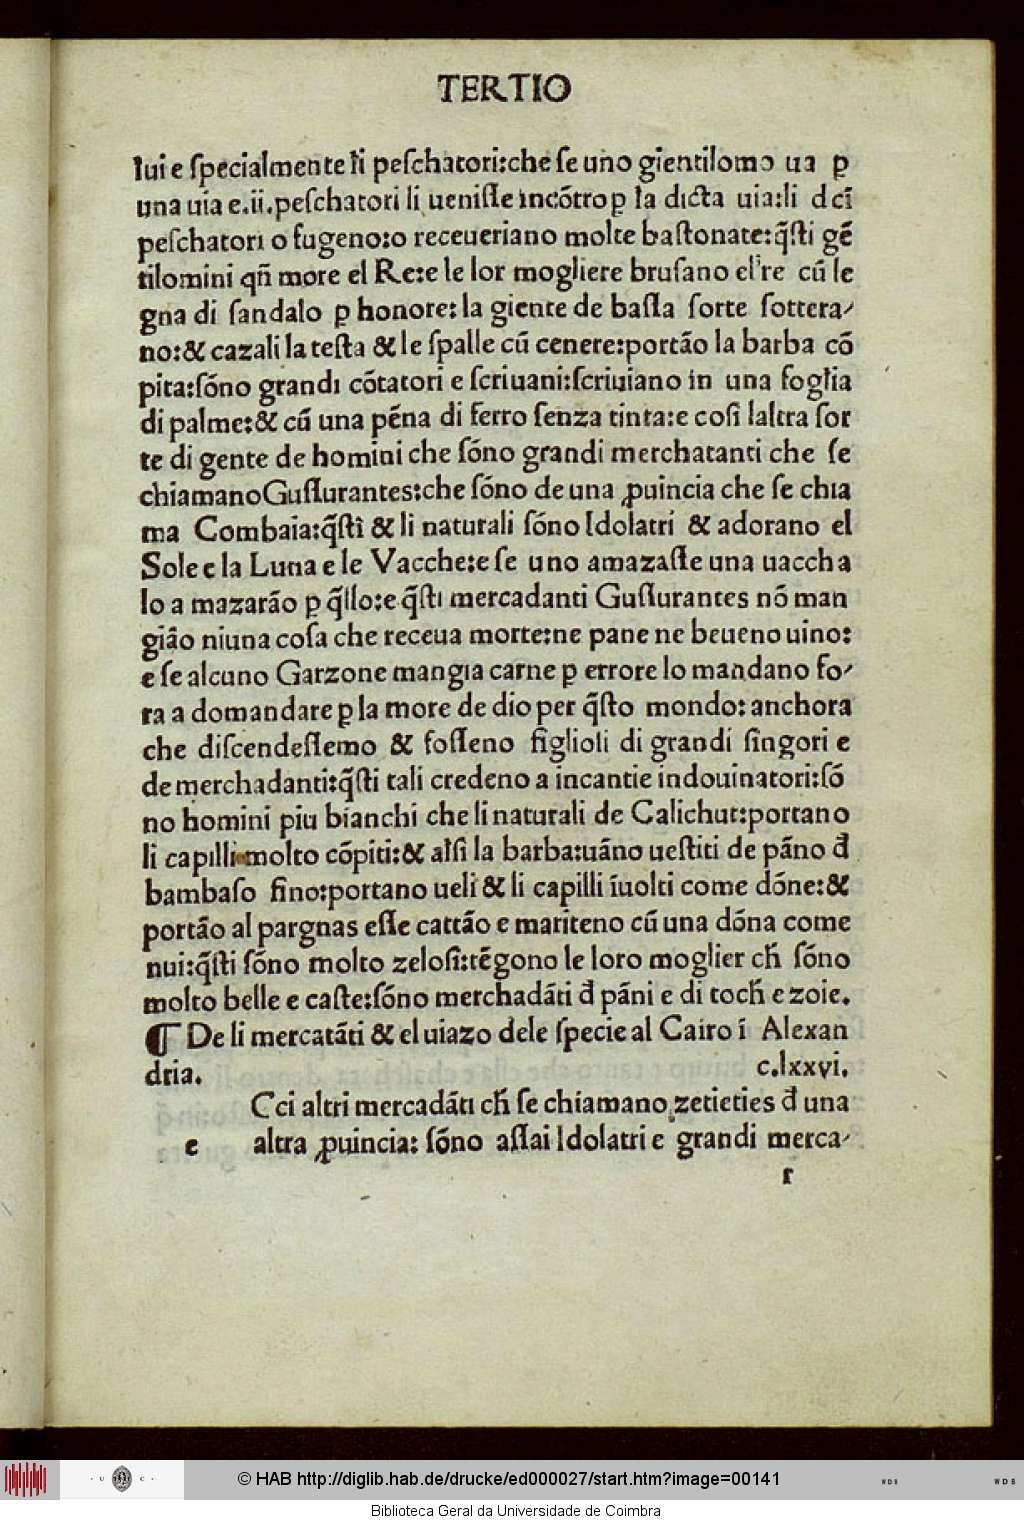 TERTIO
lui e ſpecialmente li peſchatori:che ſe uno gientilomo ua ꝑ
una uia e.ii.peſchatori li ueniſſe incõtro ꝑ la dicta uia:li dcī
peſchatori o fugeno:o receueriano molte baſtonate:q̃ſti gẽ
tilomini qñ more el Re:e le lor mogliere bruſano el re cũ le
gna di ſandalo ꝑ honore:la giente de baſſa ſorte ſottera⸗
no:& cazali la teſta & le ſpalle cũ cenere:portão la barba cõ
pita:ſõno grandi cõtatori e ſcriuani:ſcriuiano in una foglia
di palme:& cũ una pẽna di ferro ſenza tinta:e coſi laltra ſor
te di gente de homini che ſõno grandi merchatanti che ſe
chiamano Guſſurantes:che ſõno de una ꝓuincia che ſe chia
ma Combaia:q̃ſti & li naturali ſõno Idolatri & adorano el
Sole e la Luna e le Vacche:e ſe uno amazaſſe una uaccha
lo a mazarão ꝑ q̃llo:e q̃ſti mercadanti Guſſurantes nõ man
gião niuna coſa che receua morte:ne pane ne beueno uino:
e ſe alcuno Garzone mangia carne ꝑ errore lo mandano fo⸗
ra a domandare ꝑ la more de dio per q̃ſto mondo:anchora
che diſcendeſſemo & foſſeno figlioli di grandi ſingori e
de merchadanti:q̃ſti tali credeno a incantie indouinatori:ſõ
no homini piu bianchi che li naturali de Calichut:portano
li capilli molto cõpiti:& alſi la barba:uãno ueſtiti de pãno đ
bambaſo fino:portano ueli & li capilli ĩuolti come dõne:&
portão al pargnas eſſe cattão e mariteno cũ una dõna come
nui:q̃ſti ſõno molto zeloſi:tẽgono le loro moglier cħ ſõno
molto belle e caſte:ſõno merchadãti đ pãni e di tocħ e zoie.
¶ De li mercatãti & el uiazo dele ſpecie al Cairo ĩ Alexan
dria. c.lxxvi.
Cci altri mercadãti cħ ſe chiamano zetieties đ una
e altra ꝓuincia: ſõno aſſai Idolatri e grandi merca⸗
r
© HAB http://diglib.hab.de/drucke/ed000027/start.htm?image=00141
Biblioteca Geral da Universidade de Coimbra